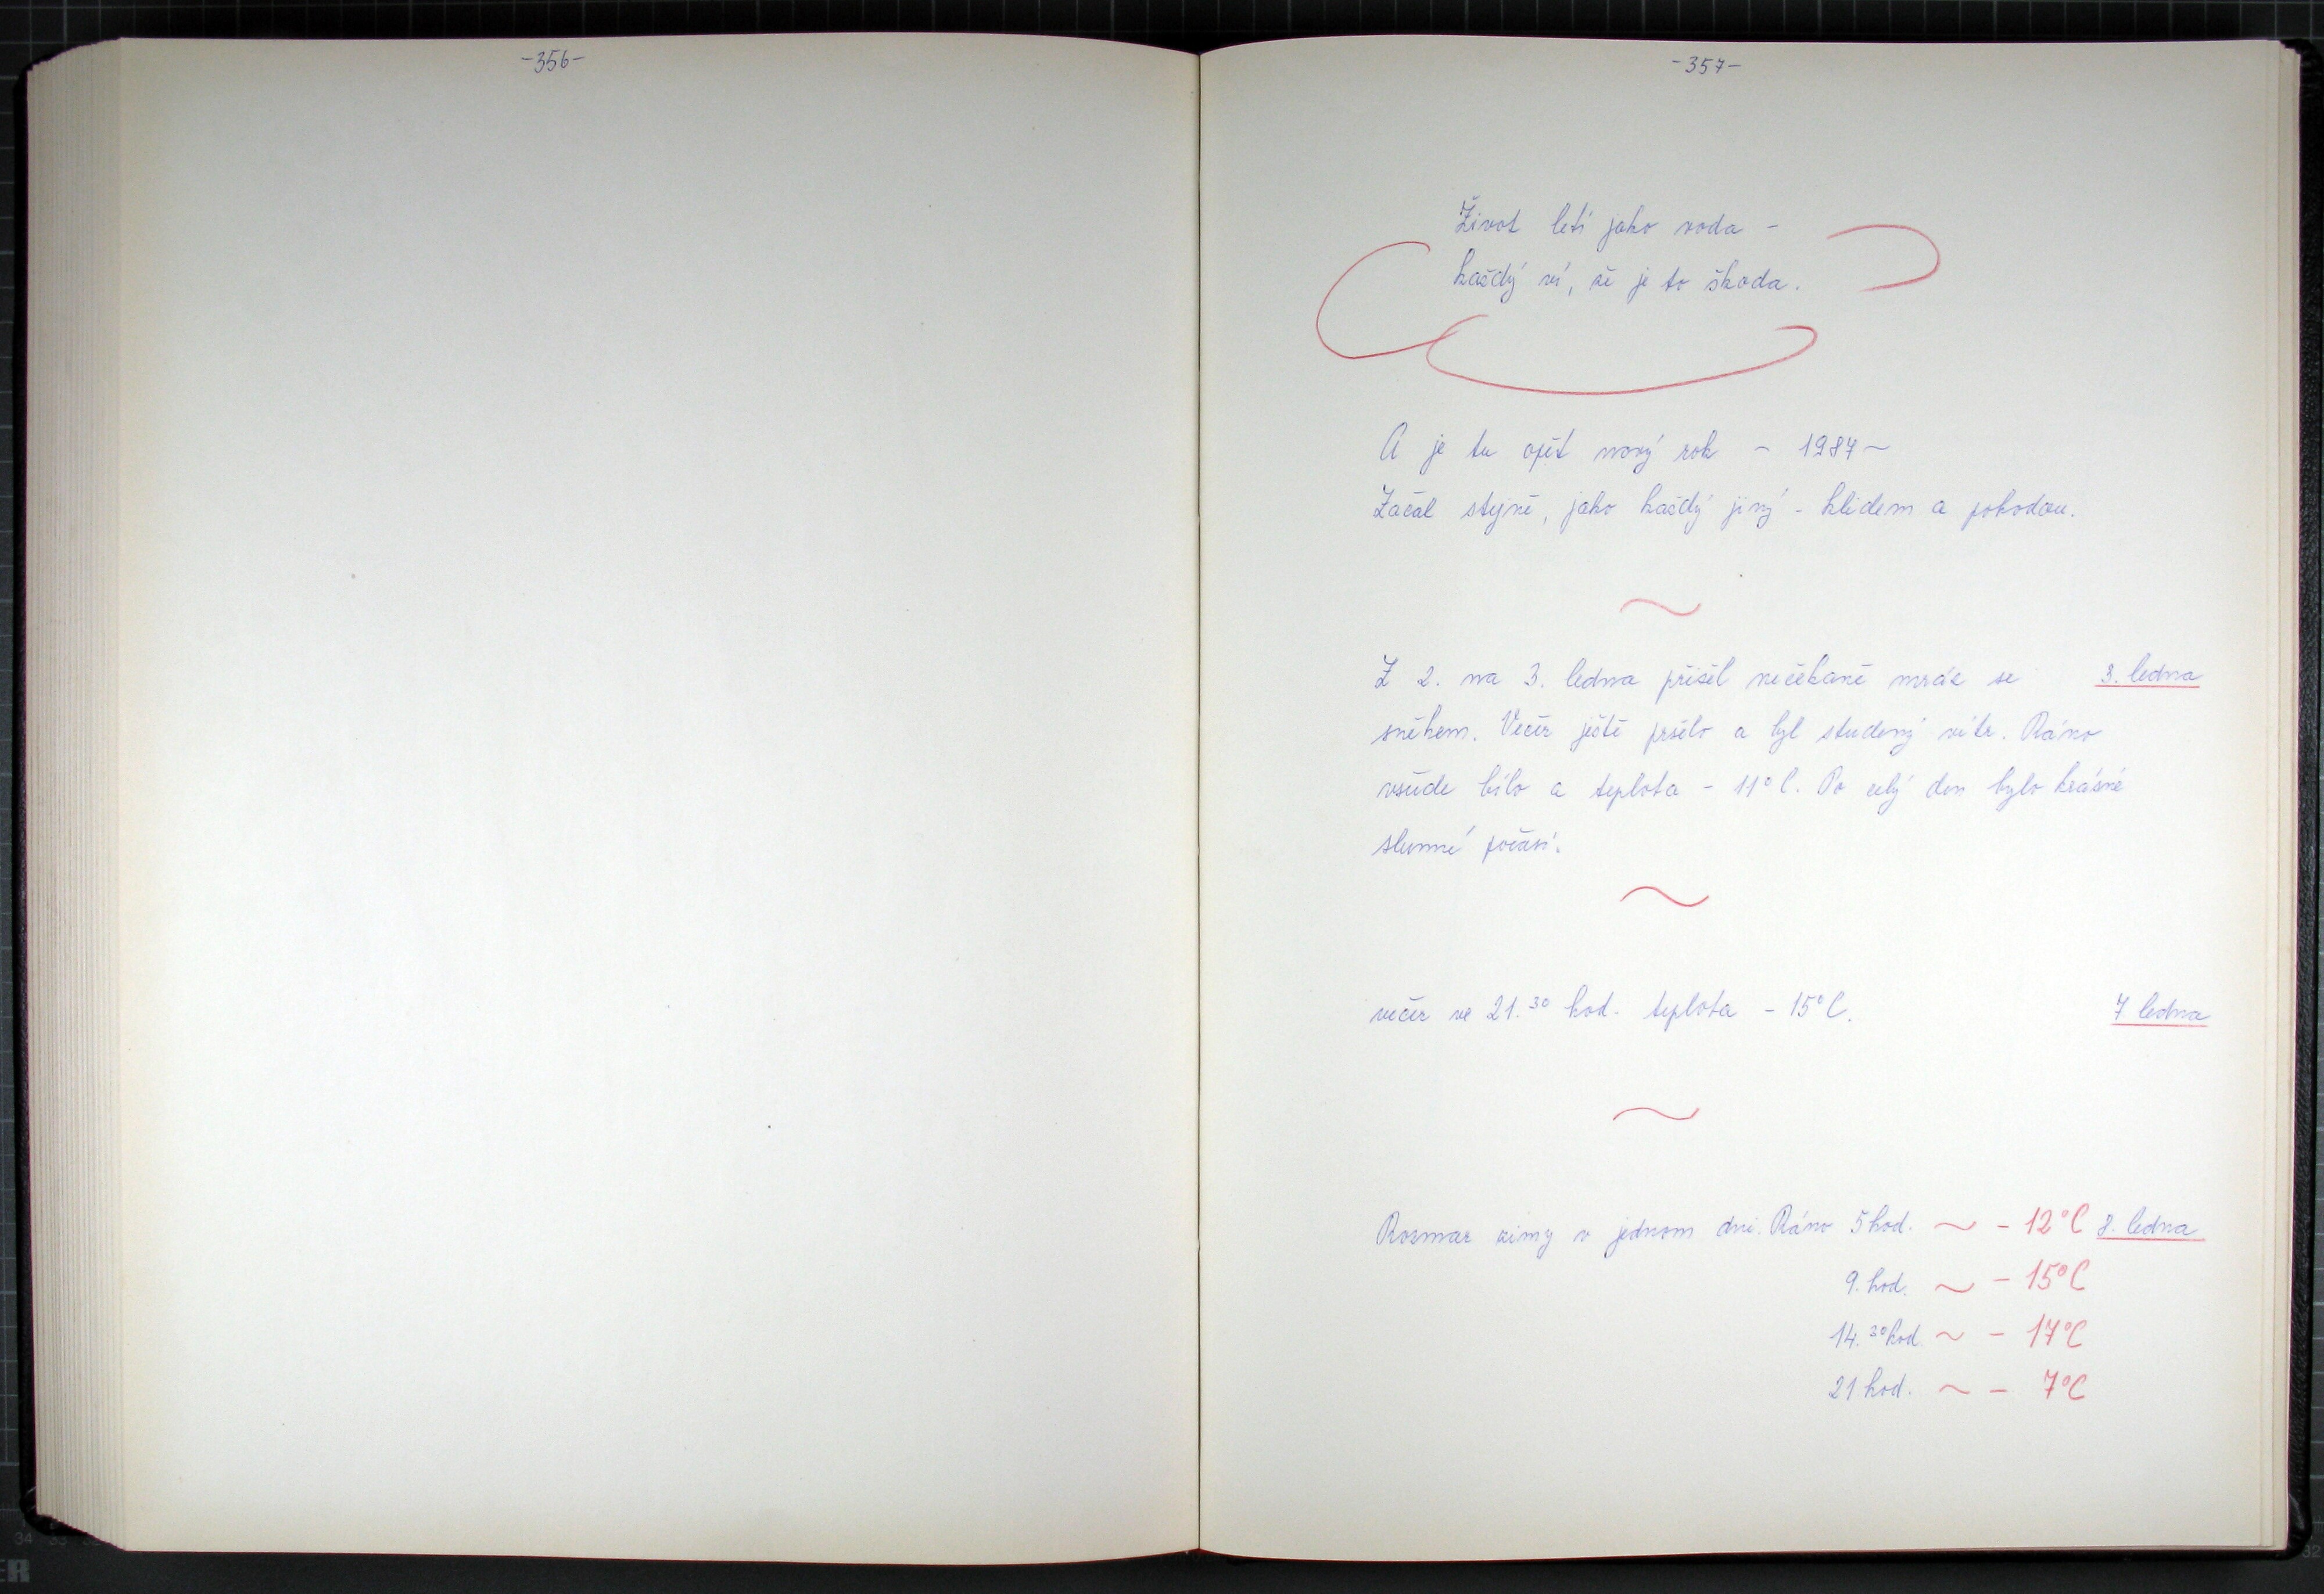 -356-
-357-
Život letí jako voda -
každý ví, že je to škoda.
A je tu opět nový rok - 1987 -
Začal stejně, jako každý jiný - klidem a pohodou.
Z 2. na 3. ledna přišel nečekaně mráz se 3. ledna
sněhem. Večer ještě pršelo a byl studený vítr. Ráno
všude bílo a teplota - 11°C. Po celý den bylo krásné
slunné počasí.
večer ve 21.30 hod. teplota - 15°C. 7 ledna
Rozmar zimy v jednom dni. Ráno 5 hod. ~ - 12°C 8. ledna
9. hod. ~ - 15°C
14.30 hod ~ - 17°C
21 hod. ~ - 7°C